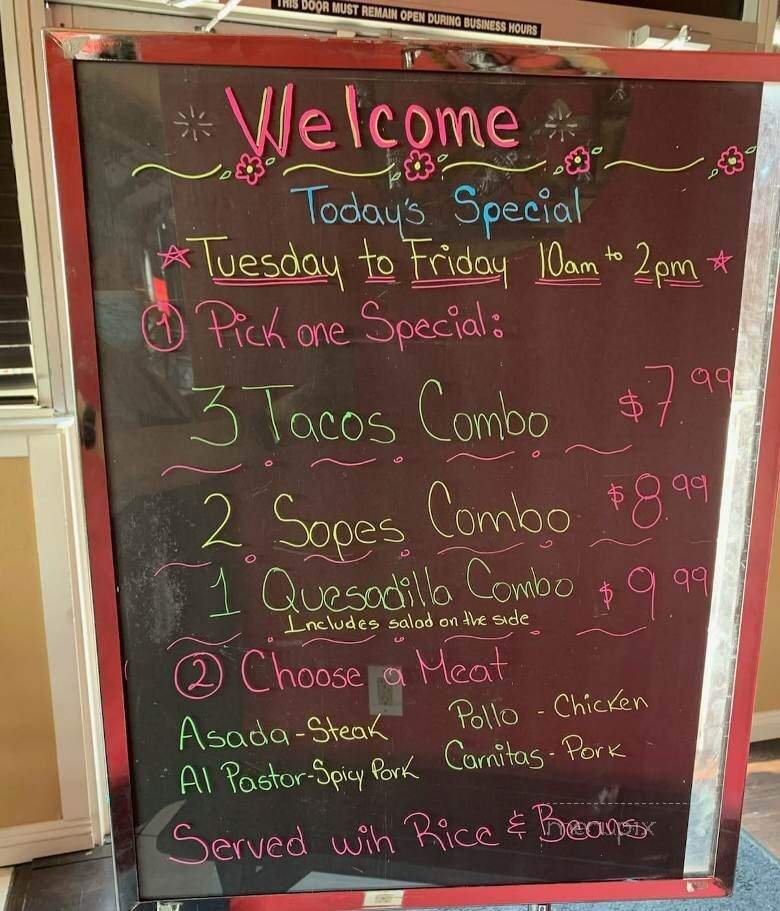 THIS DOOR MUST REMAIN OPEN DURING BUSINESS HOURS
Welcome
Today's Special
Tuesday to Friday 10am to 2pm
1 Pick one Special:
3 Tacos Combo $7.99
2 Sopes Combo $8.99
1 Quesadilla Combo $9.99
Includes salad on the side
2 Choose a Meat
Asada-Steak Pollo - Chicken
Al Pastor-Spicy Pork Carnitas - Pork
Served wih Rice & Beans
menupix